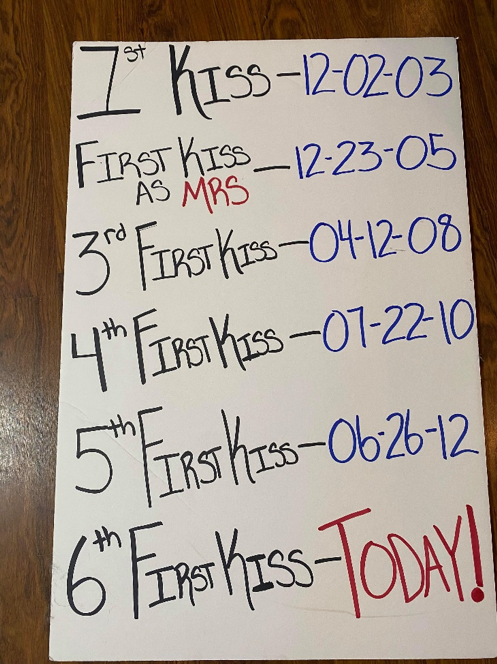 1st KISS - 12-02-03
FIRST KISS - 12-23-05
AS MRS
3rd FIRST KISS - 04-12-08
4th FIRST KISS - 07-22-10
5th FIRST KISS - 06-26-12
6th FIRST KISS - TODAY!